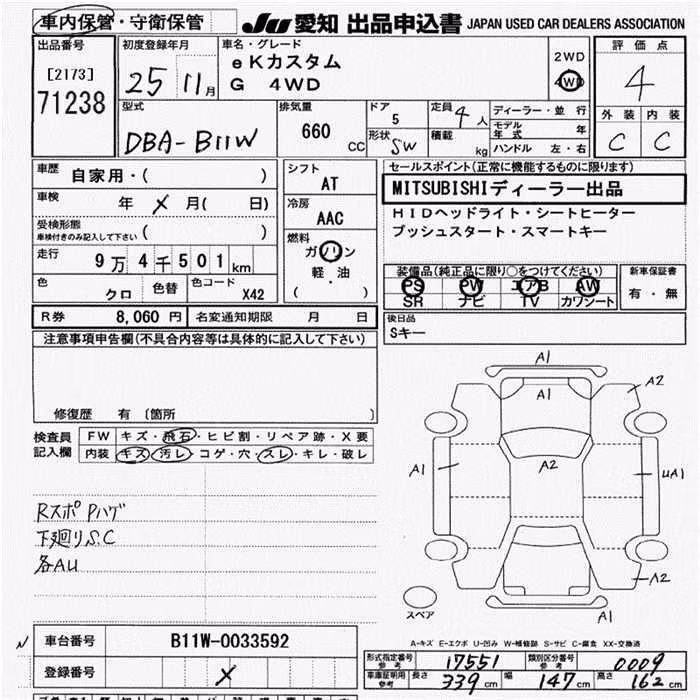 車内保管・守衛保管
JU 愛知 出品申込書 JAPAN USED CAR DEALERS ASSOCIATION
出品番号
[2173]
71238
初度登録年月
25 11月
車名・グレード
eKカスタム
G 4WD
2WD
4WD
評価点
4
外装 内装
C C
型式
DBA-B11W
排気量
660 CC
ドア
5
形状
SW
定員
4人
積載
kg
ディーラー・並行
モデル年式 年
ハンドル 左・右
車歴 自家用・( )
車検 年 × 月( 日)
受検形態
車検付きのみ記入して下さい ( )
走行 9万4千501km
色 クロ 色替 色コード X42
シフト
AT
冷房
AAC
燃料
ガソリン
軽・油
( )
セールスポイント(正常に機能するものに限ります)
MITSUBISHIディーラー出品
HIDヘッドライト・シートヒーター
プッシュスタート・スマートキー
装備品(純正品に限り○をつけてください)
PS PW エアB AW
SR ナビ TV カワシート
新車保証書
有・無
R券 8,060円 名変通知期限 月 日
後日品
Sキー
注意事項申告欄(不具合内容等は具体的に記入して下さい)
修復歴 有 〔箇所 〕
検査員
記入欄
FW キズ・飛石・ヒビ割・リペア跡・X要
内装 キズ・汚レ・コゲ・穴・スレ・キレ・破レ
RスポPハゲ
下廻りS.C
各AU
A1
A1
A2
A1
A2
UA1
A2
A1
スペア
A-キズ E-エクボ U-凹み W-補修跡 S-サビ C-腐食 XX-交換済
車台番号 B11W-0033592
登録番号 ×
形式指定番号
参考
17551
類別区分番号
参考
0009
車庫証明用
参考
長さ 339cm 幅 147cm 高さ 162cm